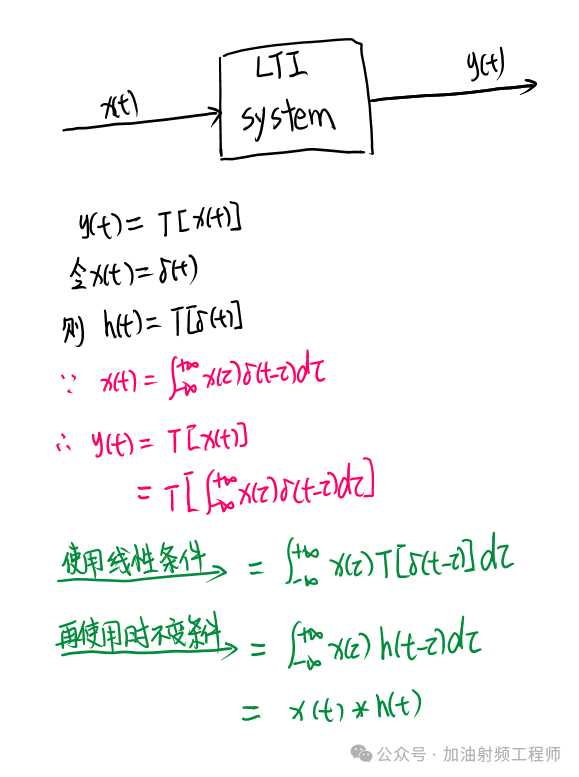 x(t)
LTI
system
y(t)
y(t) = T[x(t)]
令x(t) = δ(t)
则 h(t) = T[δ(t)]
∵ x(t) = ∫_{-∞}^{+∞} x(τ)δ(t-τ)dτ
∴ y(t) = T[x(t)]
= T[∫_{-∞}^{+∞} x(τ)δ(t-τ)dτ]
使用线性条件 = ∫_{-∞}^{+∞} x(τ)T[δ(t-τ)]dτ
再使用时不变条件 = ∫_{-∞}^{+∞} x(τ)h(t-τ)dτ
= x(t) * h(t)
公众号 · 加油射频工程师